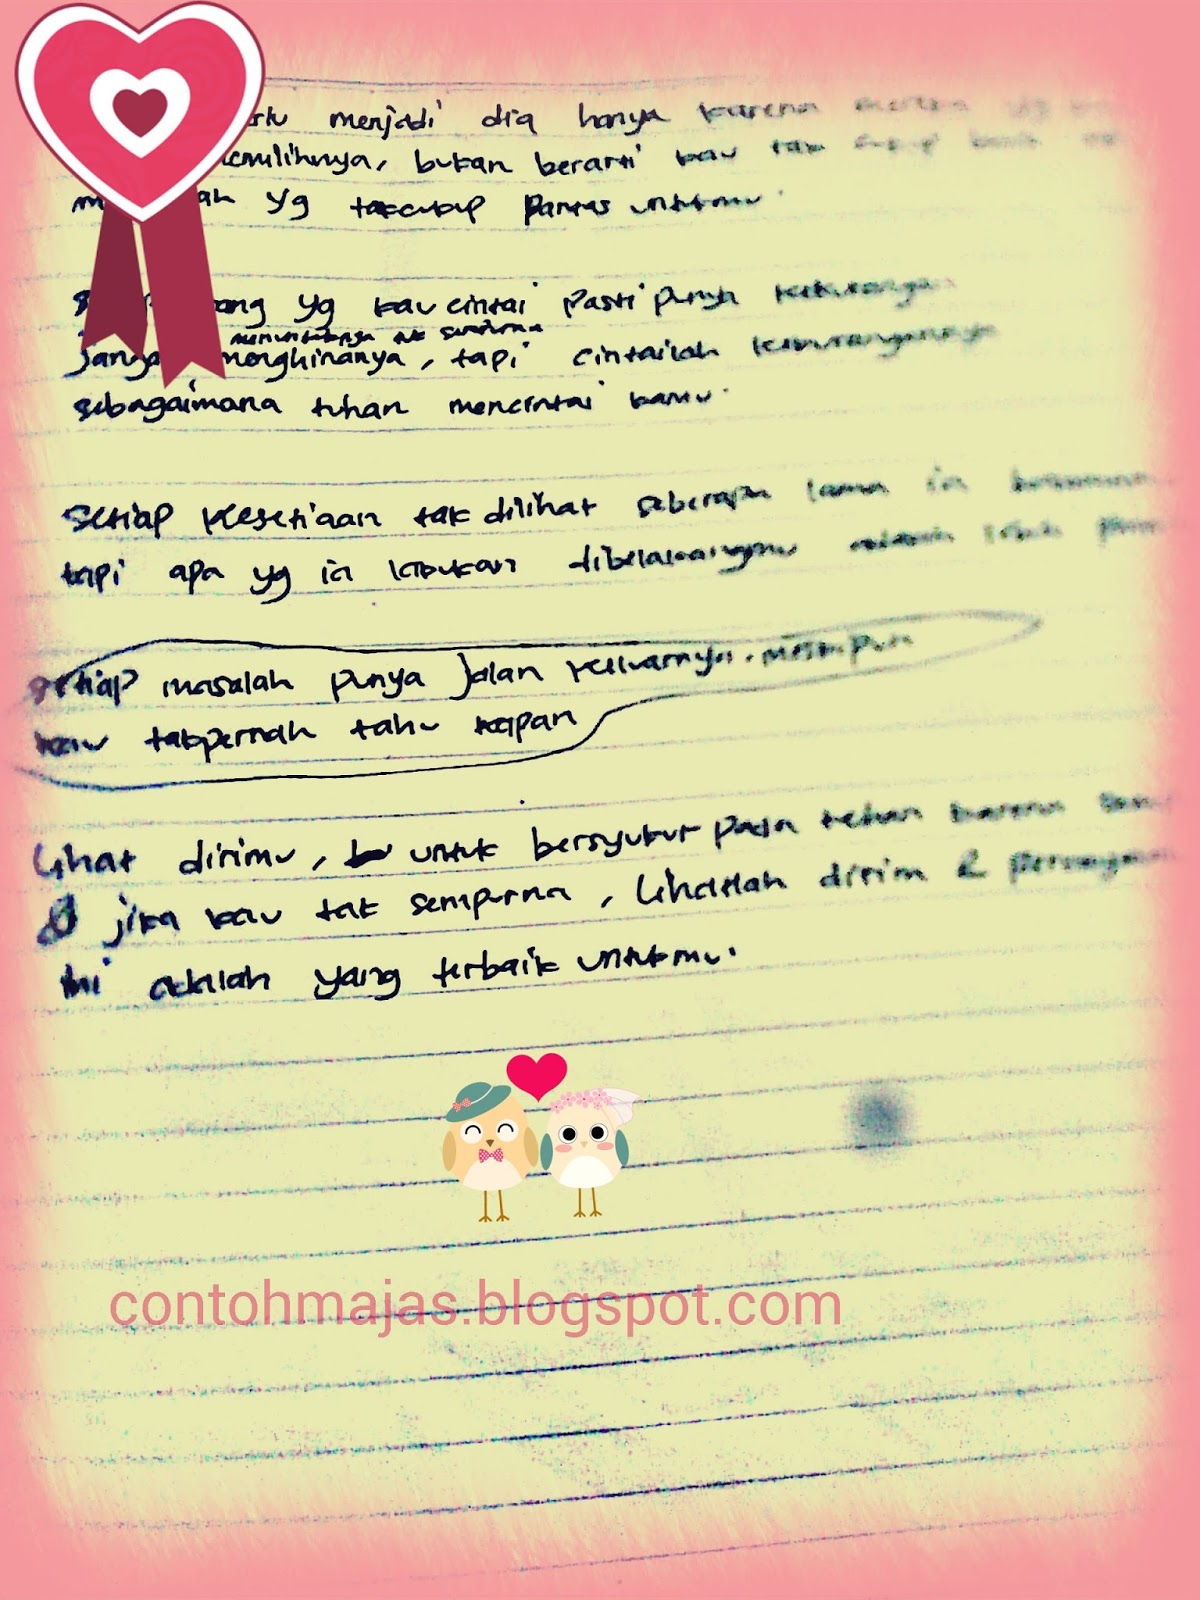 menjadi dia hanya karena
bukan berarti kau tak
yg takcukup pantas untukmu.
yg kau cintai pasti punya kekurangan
menuntutnya tuk sempurna
menghinanya, tapi cintailah kekurangannya
sebagaimana tuhan mencintai kamu.
Setiap kesetiaan tak dilihat seberapa lama ia bersamamu
tapi apa yg ia lakukan dibelakangmu
setiap masalah punya jalan keluarnya. meskipun
kau takpernah tahu kapan
lihat dirimu, untuk bersyukur pada tuhan karena
jika kau tak sempurna, lihatlah dirim &
ini adalah yang terbaik untukmu.
contohmajas.blogspot.com